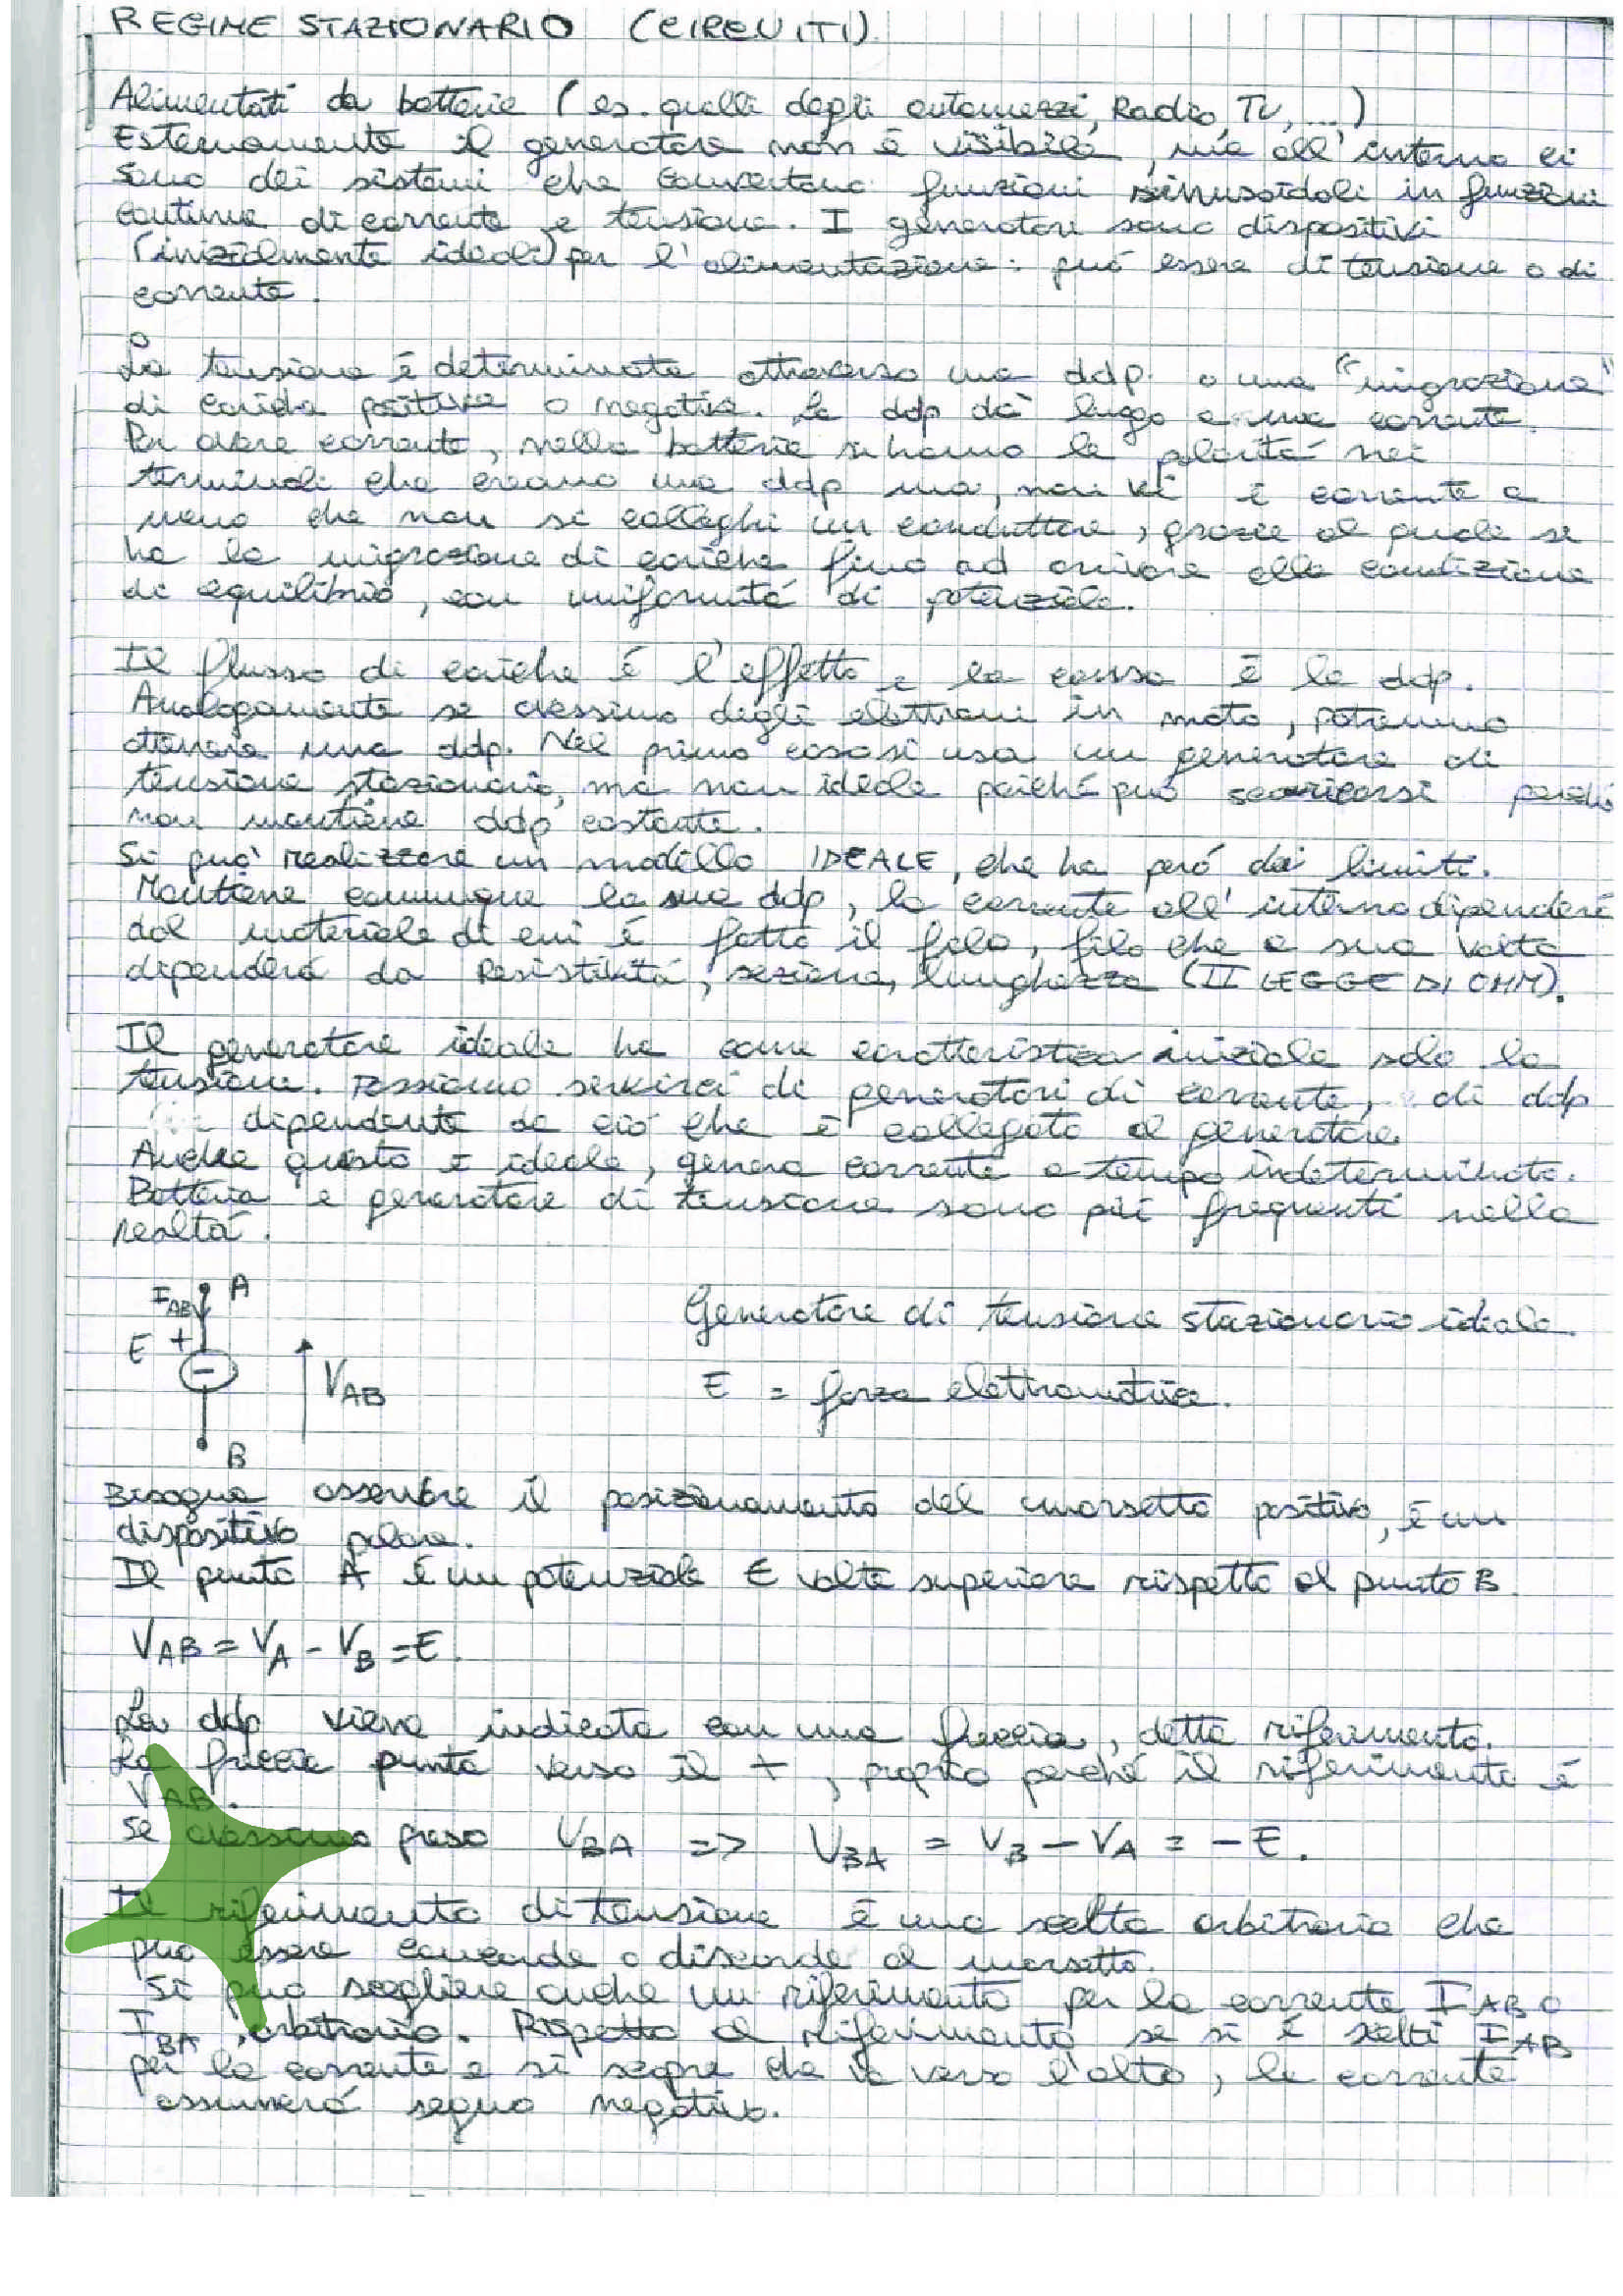 REGIME STAZIONARIO (CIRCUITI)
Alimentati da batterie (es. quelli degli automezzi, Radio, TV, ...)
Esternamente il generatore non é visibile, ma all'interno ci
sono dei sistemi che convertono funzioni sinusoidali in funzioni
continue di corrente e tensione. I generatori sono dispositivi
(inizialmente ideali) per l'alimentazione: può essere di tensione o di
corrente.
La tensione é determinata attraverso una ddp. o una "migrazione"
di cariche positive o negative. La ddp dà luogo a una corrente.
Per avere corrente, nelle batterie si hanno le polarità nei
terminali che creano una ddp ma, non vi è corrente a
meno che non si colleghi un conduttore, grazie al quale si
ha la migrazione di cariche fino ad arrivare alla condizione
di equilibrio, con uniformità di potenziale.
Il flusso di cariche é l'effetto e la causa è la ddp.
Analogamente se avessimo degli elettroni in moto, potremmo
ottenere una ddp. Nel primo caso si usa un generatore di
tensione stazionario, ma non ideale poiché può scaricarsi perché
non mantiene ddp costante.
Si può realizzare un modello IDEALE, che ha però dei limiti.
Mantiene comunque la sua ddp, la corrente all'interno dipenderà
dal materiale di cui é fatto il filo, filo che a sua volta
dipenderá da Resistività, sezione, lunghezza (II LEGGE DI OHM).
Il generatore ideale ha come caratteristica iniziale solo la
tensione. Possiamo servirci di generatori di corrente, di ddp
dipendente da ciò che è collegato al generatore.
Anche questo è ideale, genera corrente a tempo indeterminato.
Batteria e generatore di tensione sono più frequenti nella
realtà.
I_AB A
E +
-
V_AB
B
Generatore di tensione stazionario ideale.
E = forza elettromotrice.
Bisogna osservare il posizionamento del morsetto positivo, é un
dispositivo polare.
Il punto A é un potenziale E volte superiore rispetto al punto B.
V_AB = V_A - V_B = E.
La ddp viene indicata con una freccia, detta riferimento.
La freccia punta verso il +, proprio perché il riferimento é
V_AB.
Se avessimo preso V_BA => V_BA = V_B - V_A = -E.
Il riferimento di tensione é una scelta arbitraria che
può essere concorde o discorde al morsetto.
Si può scegliere anche un riferimento per la corrente I_AB o
I_BA, arbitrario. Rispetto al riferimento se si è scelti I_AB
per la corrente e si segna che va verso l'alto, la corrente
assumerá segno negativo.